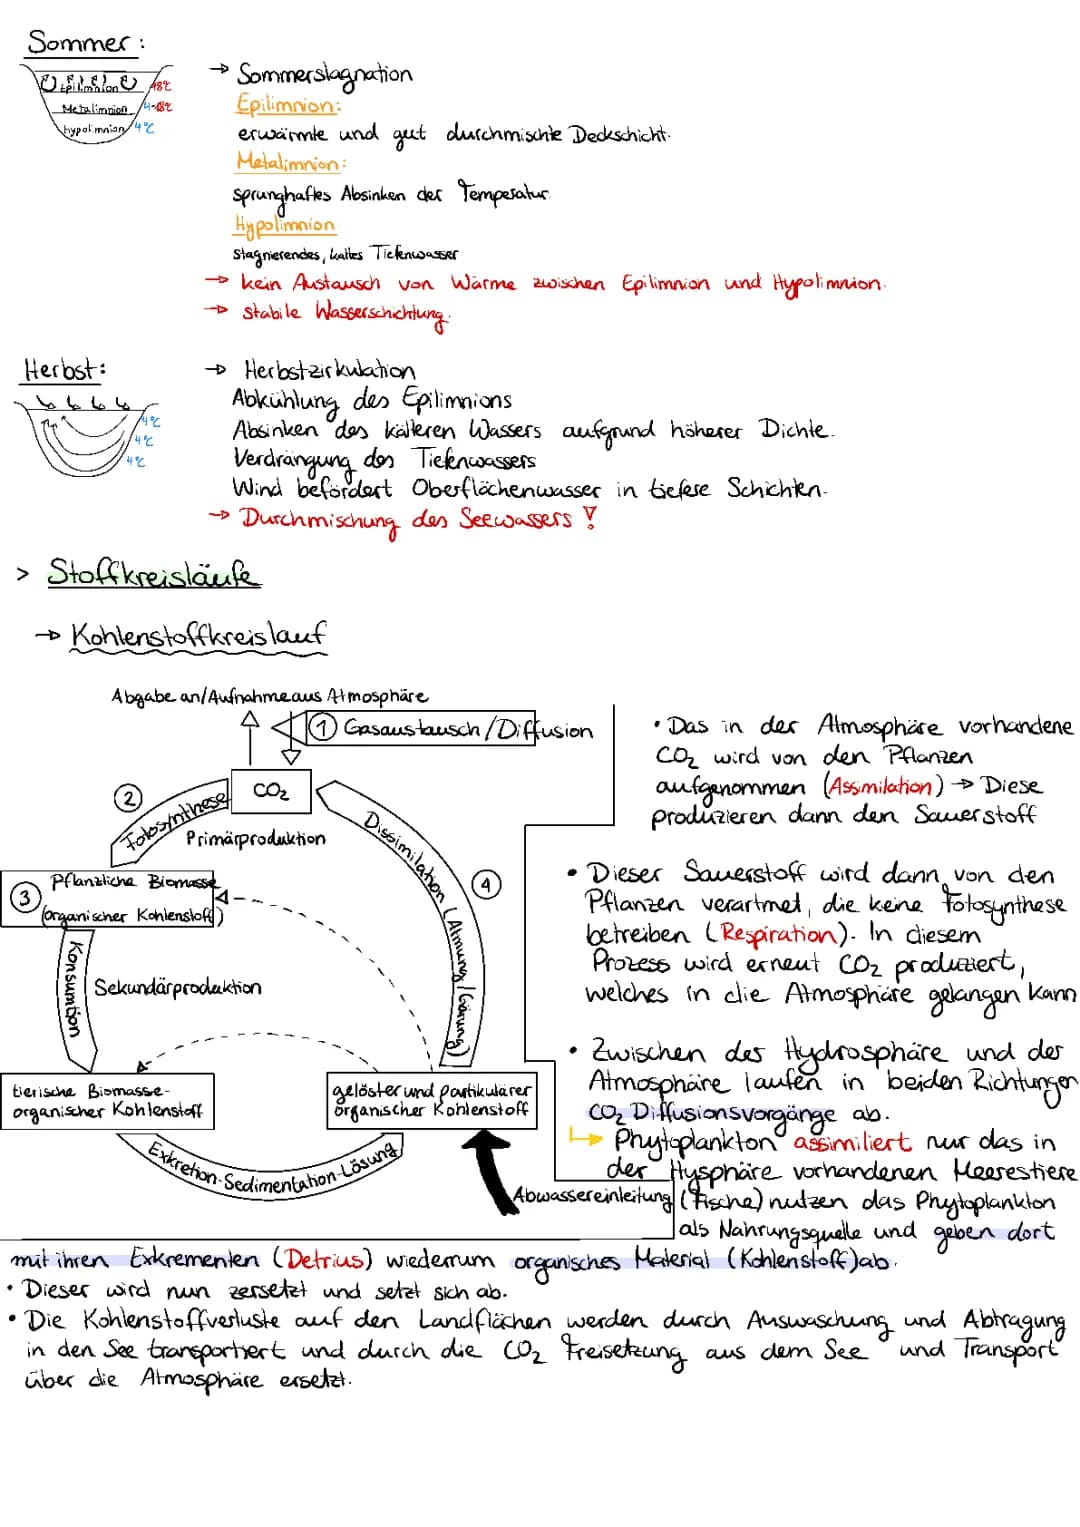 Sommer :
Epilimnion 18°C
Metalimnion 4-18°C
hypolimnion 4°C
→ Sommerstagnation
Epilimnion:
erwärmte und gut durchmischte Deckschicht.
Metalimnion:
sprunghaftes Absinken der Temperatur
Hypolimnion
stagnierendes, kaltes Tiefenwasser
→ kein Austausch von Wärme zwischen Epilimnion und Hypolimnion.
→ stabile Wasserschichtung.
Herbst:
4°C
4°C
4°C
→ Herbstzirkulation
Abkühlung des Epilimnions
Absinken des kälteren Wassers aufgrund höherer Dichte.
Verdrängung des Tiefenwassers
Wind befördert Oberflächenwasser in tiefere Schichten.
→ Durchmischung des Seewassers !
> Stoffkreisläufe
→ Kohlenstoffkreislauf
Abgabe an/Aufnahme aus Atmosphäre
1 Gasaustausch/Diffusion
CO₂
2 Fotosynthese
Primärproduktion
Dissimilation (Atmung/Gärung)
4
3 Pflanzliche Biomasse
(organischer Kohlenstoff)
Konsumtion
Sekundärproduktion
tierische Biomasse-
organischer Kohlenstoff
gelöster und partikulärer
organischer Kohlenstoff
Exkretion-Sedimentation-Lösung
Abwassereinleitung
• Das in der Atmosphäre vorhandene
CO₂ wird von den Pflanzen
aufgenommen (Assimilation) → Diese
produzieren dann den Sauerstoff
• Dieser Sauerstoff wird dann von den
Pflanzen verartmet, die keine Fotosynthese
betreiben (Respiration). In diesem
Prozess wird erneut CO₂ produziert,
welches in die Atmosphäre gelangen kann
• Zwischen der Hydrosphäre und der
Atmosphäre laufen in beiden Richtungen
CO₂ Diffusionsvorgänge ab.
↳ Phytoplankton assimiliert nur das in
der Hysphäre vorhandenen Meerestiere
(Fische) nutzen das Phytoplankton
als Nahrungsquelle und geben dort
mit ihren Exkrementen (Detrius) wiederrum organisches Material (Kohlenstoff) ab.
• Dieser wird nun zersetzt und setzt sich ab.
• Die Kohlenstoffverluste auf den Landflächen werden durch Auswaschung und Abtragung
in den See transportiert und durch die CO₂ Freisetzung aus dem See und Transport
über die Atmosphäre ersetzt.